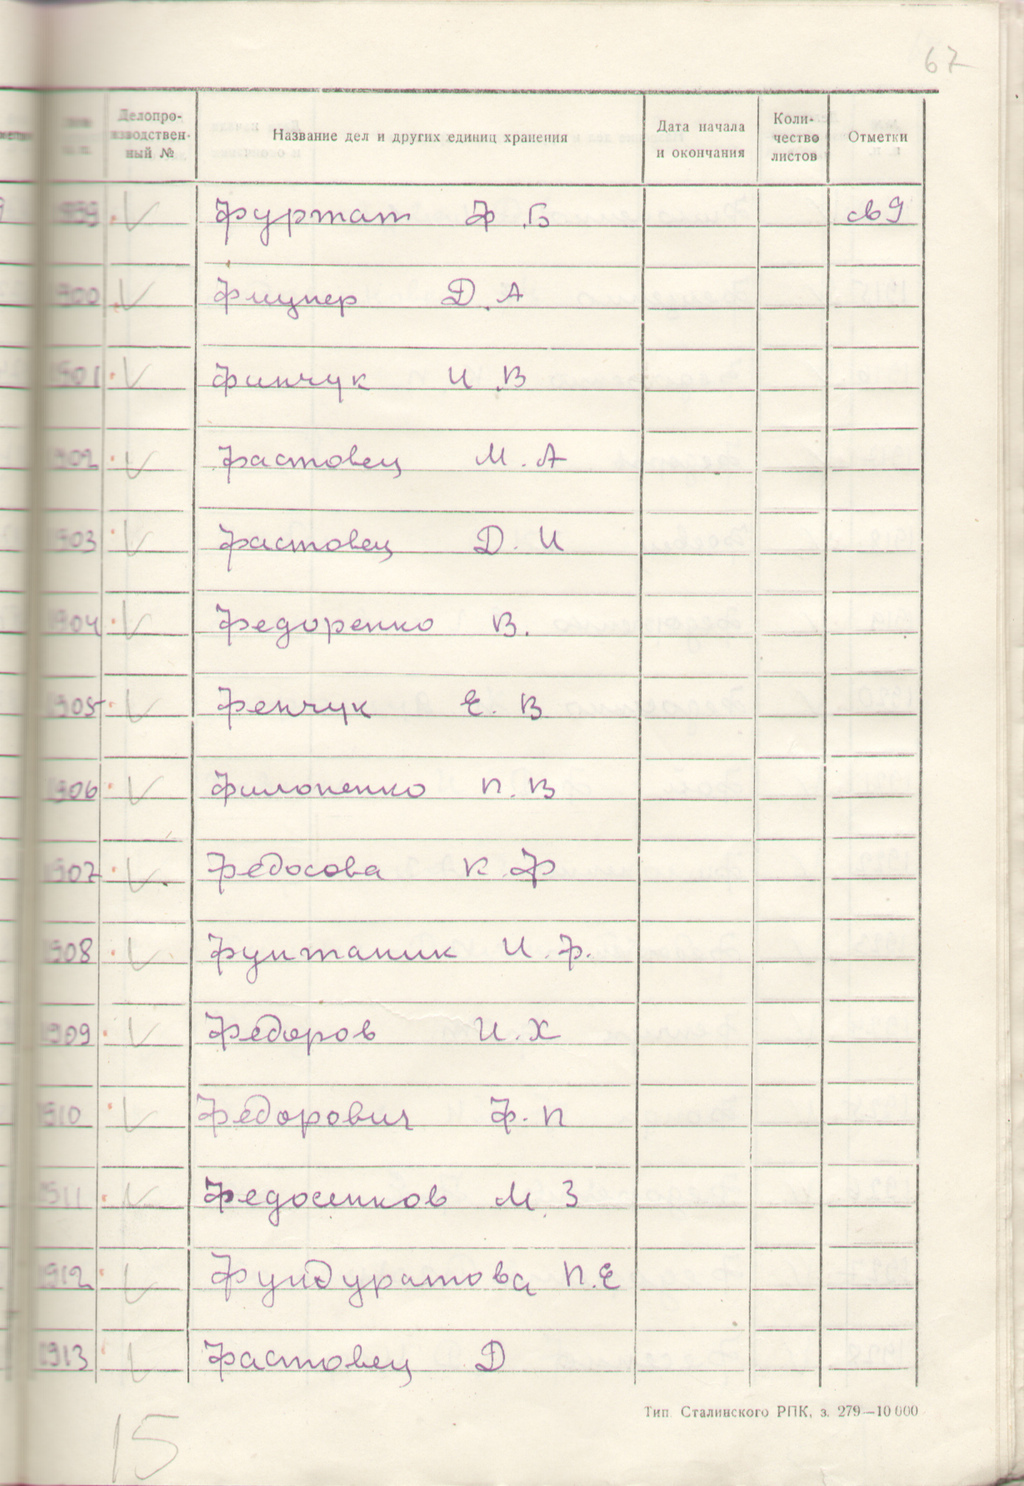 67
Делопроизводственный №
Название дел и других единиц хранения
Дата начала и окончания
Количество листов
Отметки
Фуртат Ф.Б св 9
1900 Фицнер Д.А
1901 Финчук И.В
1902 Фастовец М.А
1903 Фастовец Д.И
1904 Федоренко В.
1905 Фенчук Е.В
1906 Филоненко П.В
1907 Федосова К.Ф
1908 Фунтаник И.Ф.
1909 Федоров И.Х
1910 Федорович Ф.П
1911 Федосенков М.З
1912 Фундуратова П.Е
1913 Фастовец Д
Тип. Сталинского РПК, з. 279—10 000
15